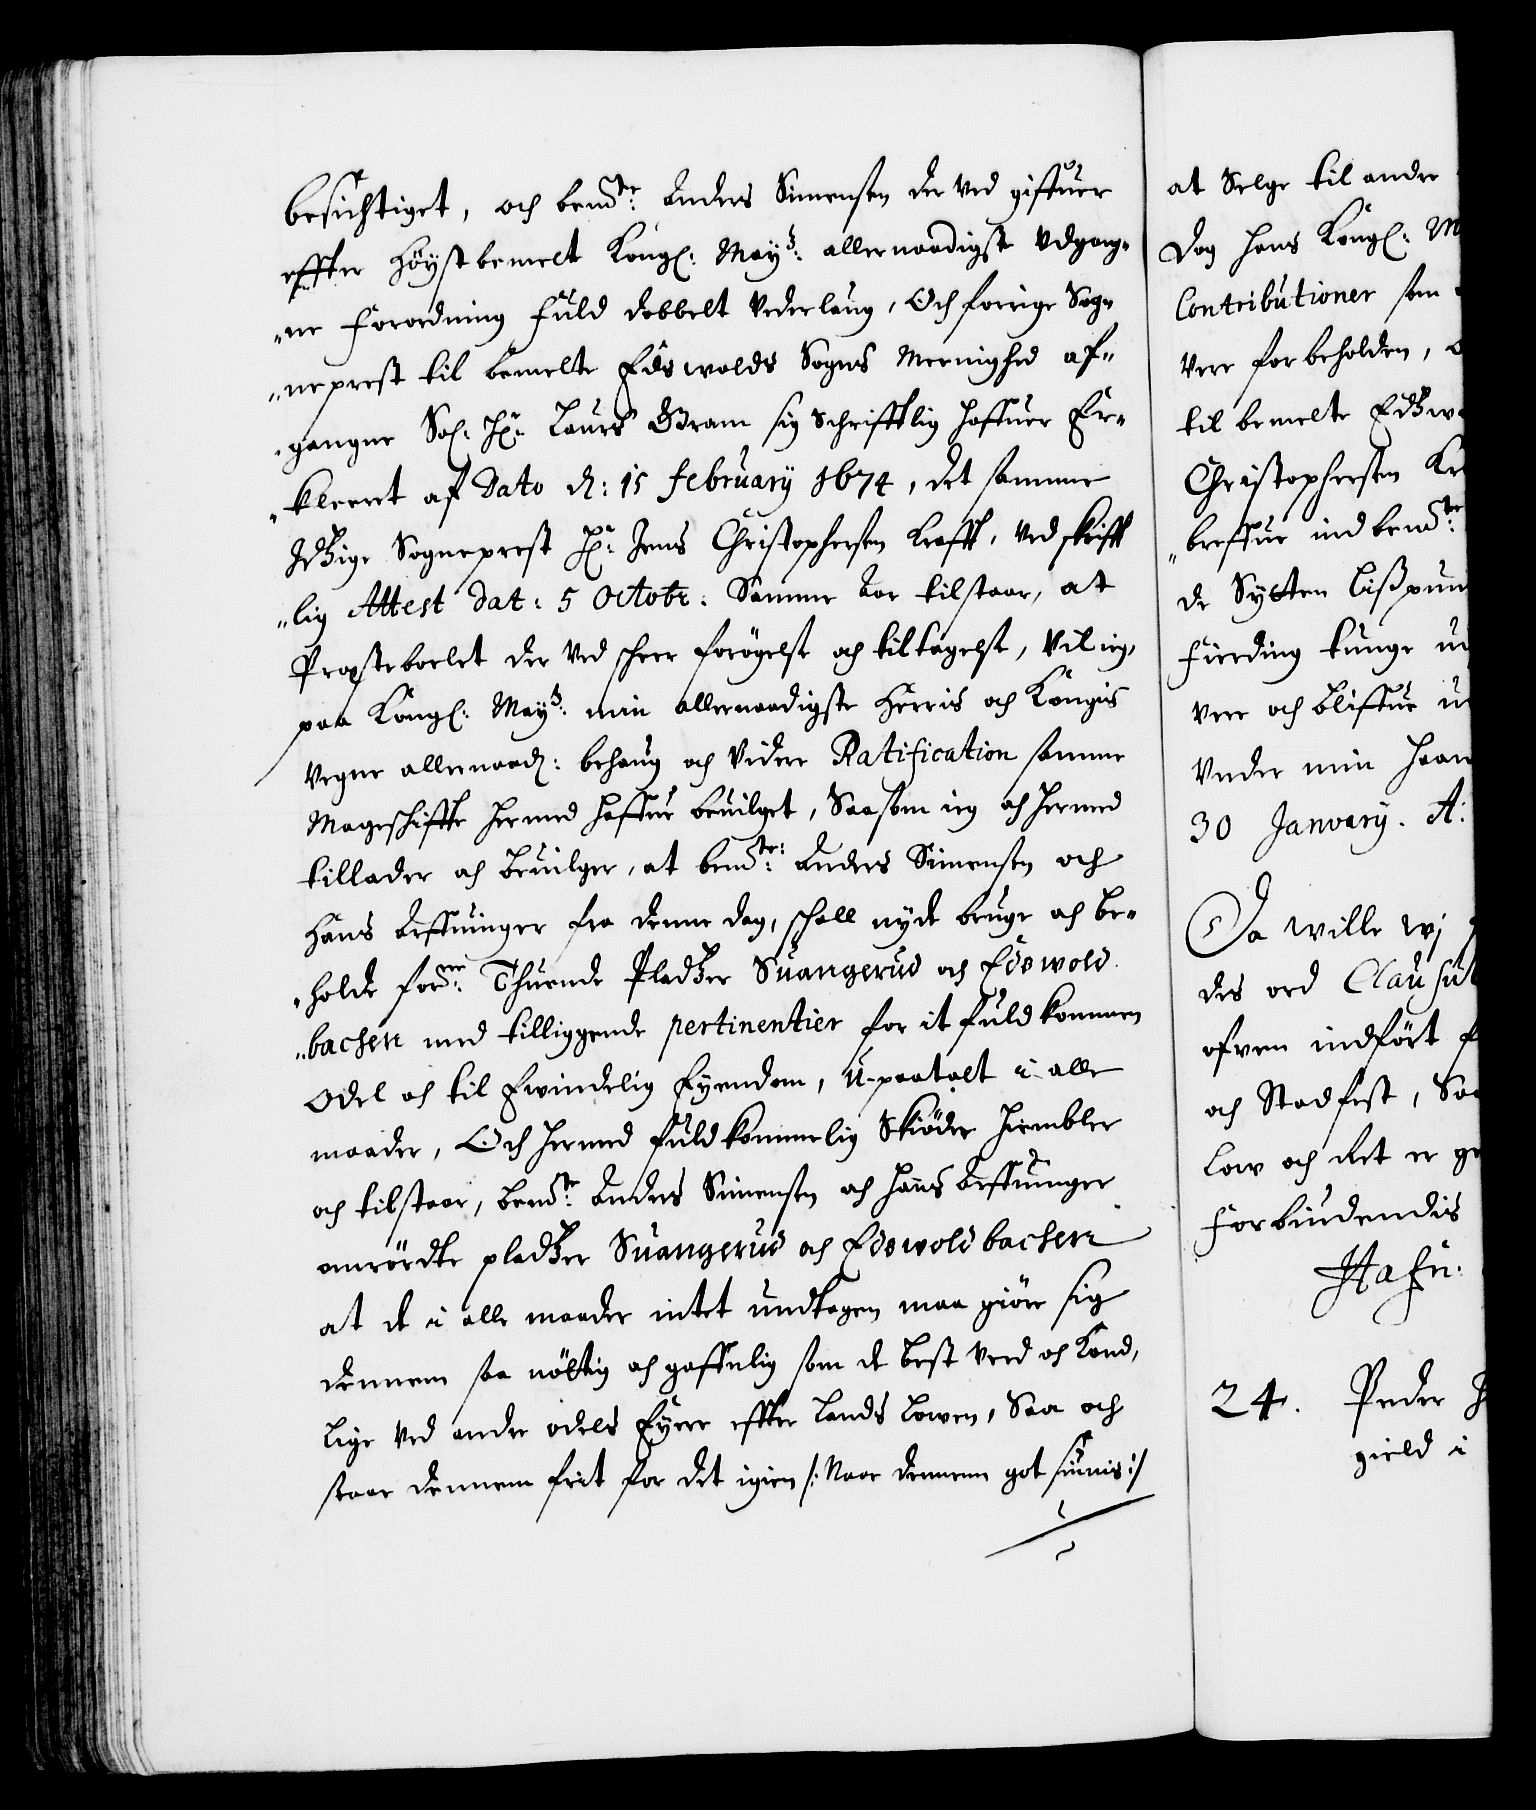 besichtiget, och bemte: Anders Simensen der ved giffuer
effter Høystbemelt Kongl: Mayts: allernaadigste Udgang-
"ne Forordning fuld dobbelt Vederlaug, Och forrige Sog-
"neprest til bemelte Edswolds Sogns Meenighed af-
"gangne Sal: Hr: Laurs Gram sig Schrifftlig haffuer Er-
"kleret af Dato d: 15 february 1674, det samme
Itzige Sogneprest Hr: Jens Christophersen Krafft, ved skrifft
"lig Attest dat: 5 Octobr: Samme Aar tilstaar, at
Præsteboelet der ved scheer forøgelse och tiltagelse, Vil ieg,
paa Kongl: Mayts: min allernaadigste Herris och Kongis
Vegne allernaad: behaug och Videre Ratification samme
Mageschiffte hermed haffue beuilget, Saasom ieg och hermed
tillader och beuilger, at bemte: Anders Simensen och
Hans Arffuinger fra denne dag, schall nyde bruge och be-
"holde forne: Thuende Pladtzer Suangerud och Edswold
"bachen med tilliggende pertinentier for it fuldkommen
Odel och til Ewindelig Eyendom, U-paatalt i alle
maader, Och hermed fuldkommelig Skiøder hiembler
och tilstaar, bemte: Anders Simensen och hans Arffuinger
anrørdte pladtzer Suangerud och Edswoldbachen
at de i alle maader intet undtagen maa giøre sig
dennem saa nøttig och gaffnlig som de best veed och Kand,
lige ved andre odels Eyere effter Lands Lowen, Saa och
staar dennem frit for det igien /: Naar dennem got siunis :/
at Selge til andre
Dog hans Kongl: M
Contributioner som
Vere forbeholden,
til bemelte Edtzw
Christophersen Kr
"breffue ind bemte:
de Sytten Lißpun
Fierding tunge
Vere och bliffue
Under min Haan
30 January. A:
Da wille wj
des ord Clausul
ofven indført
och Stadfest, Saa
Low och Ret er
Forbiudendis
Hafn:
24. Peder
gield i